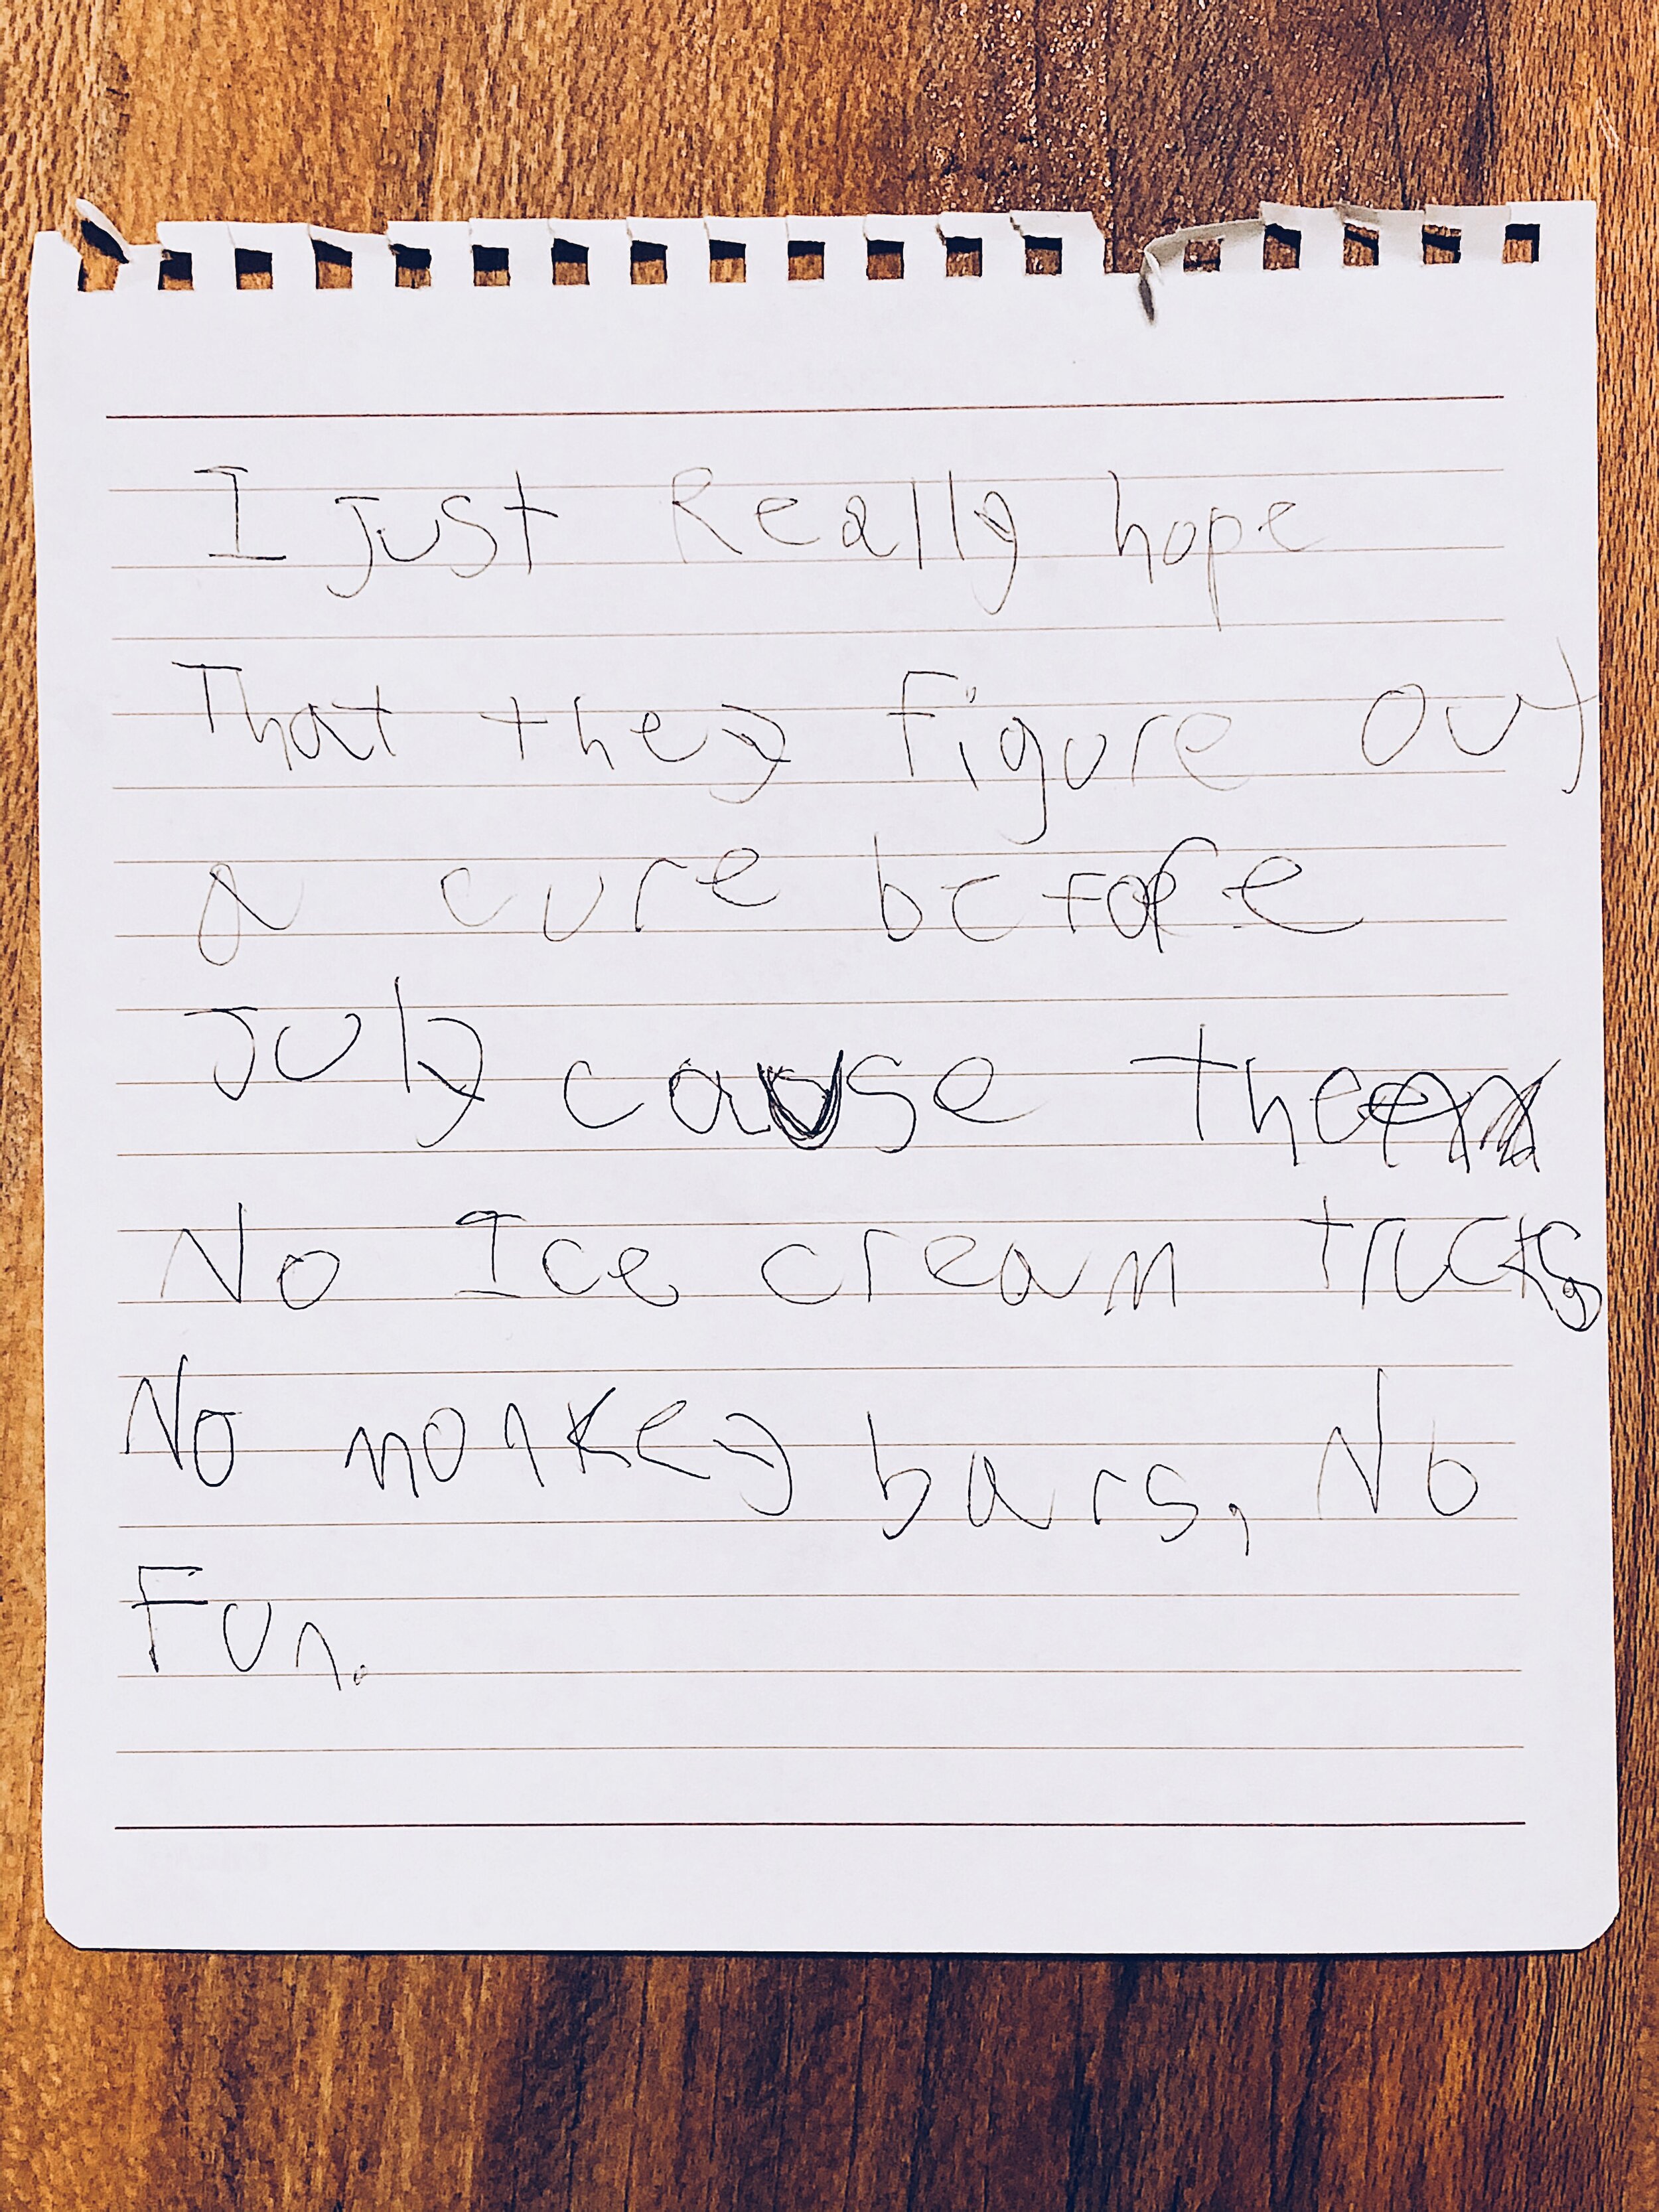 I just Really hope
That they Figure out
a cure before
July cause then
No Ice cream trucks,
No monkey bars, No
Fun.